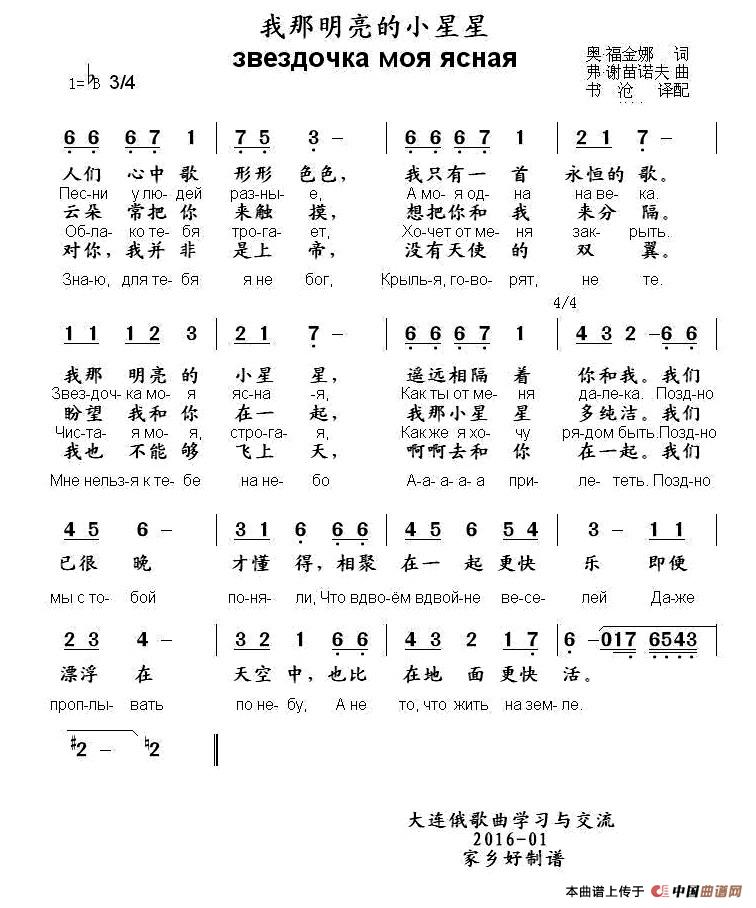 我那明亮的小星星
звездочка моя ясная
奥·福金娜 词
弗·谢苗诺夫 曲
书 沧 译配
1=♭B 3/4
6 6 6 7 1 | 7 5 3 – | 6 6 6 7 1 | 2 1 7 – |
人们 心中 歌 形形 色色, 我只有一 首 永恒的 歌。
Пес-ни у лю-дей раз-ны-е, А мо-я од-на на ве-ка.
云朵 常把 你 来触 摸, 想把你和 我 来分 隔。
Об-ла-ко те-бя тро-га-ет, Хо-чет от ме-ня зак-рыть.
对你,我并 非 是上 帝, 没有天使 的 双 翼。
Зна-ю, для те-бя я не бог, Крыль-я, го-во-рят, не те.
4/4
1 1 1 2 3 | 2 1 7 – | 6 6 6 7 1 | 4 3 2 – 6 6 |
我那 明亮 的 小星 星, 遥远相隔 着 你和我。我们
Звез-доч-ка мо-я яс-на-я, Как ты от ме-ня да-ле-ка. Позд-но
盼望 我和 你 在一 起, 我那小星 星 多纯洁。我们
Чис-та-я мо-я, стро-га-я, Как же я хо-чу ря-дом быть.Позд-но
我也 不能 够 飞上 天, 啊啊去和 你 在一起。我们
Мне нельз-я к те-бе на не-бо А-а-а-а-а при-ле-теть. Позд-но
4 5 6 – | 3 1 6 6 6 | 4 5 6 5 4 | 3 – 1 1 |
已很 晚 才懂 得,相聚 在一 起更快 乐 即便
мы с то-бой по-ня-ли, Что вдво-ём вдвой-не ве-се-лей Да-же
2 3 4 – | 3 2 1 6 6 | 4 3 2 1 7 | 6 – 017 6543 |
漂浮 在 天空 中,也比 在地 面更快 活。
проп-лы-вать по не-бу, А не то, что жить на зем-ле.
♯2 – ♮2 ‖
大连俄歌曲学习与交流
2016-01
家乡好制谱
本曲谱上传于 中国曲谱网